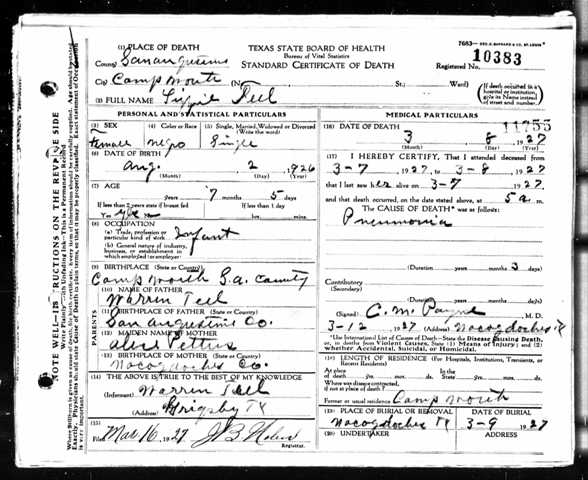 7683—GEO. D. BARNARD & CO. ST. LOUIS
(1) PLACE OF DEATH
TEXAS STATE BOARD OF HEALTH
Bureau of Vital Statistics
STANDARD CERTIFICATE OF DEATH
County Sanaugustine
Registered No. 10383
City Camp Worth (No. St. Ward)
(If death occurred in a hospital or institution, give its Name instead of street and number.)
(2) FULL NAME Teel
PERSONAL AND STATISTICAL PARTICULARS
(3) SEX
(4) Color or Race
(5) Single, Married, Widowed or Divorced
(Write the word)
Female Negro Single
(6) DATE OF BIRTH
Aug. 2 1926
(Month) (Day) (Year)
(7) AGE
years 7 months 5 days
If less than 2 years state if breast fed
If less than 1 day
Yes hrs. mins.
(8) OCCUPATION
(a) Trade, profession or particular kind of work Infant
(b) General nature of industry, business, or establishment in which employed (or employer)
(9) BIRTHPLACE (State or County)
Camp Worth S.a. County
PARENTS
(10) NAME OF FATHER
Warren Teel
(11) BIRTHPLACE OF FATHER (State or County)
San Augustine Co.
(12) MAIDEN NAME OF MOTHER
Alice Pettus
(13) BIRTHPLACE OF MOTHER (State or County)
Nacogdoches Co.
(14) THE ABOVE IS TRUE TO THE BEST OF MY KNOWLEDGE
(Informant) Warren Teel
(Address) Grigsby Tx
(15)
Filed Mar 16 1927
Registrar.
MEDICAL PARTICULARS
11755
(16) DATE OF DEATH
3 8 1927
(Month) (Day) (Year)
(17) I HEREBY CERTIFY, That I attended deceased from
3-7 1927, to 3-8 1927
that I last saw her alive on 3-7 1927.
and that death occurred, on the date stated above, at 5 a. m.
The CAUSE OF DEATH* was as follows:
Pneumonia
(Duration years months 3 days
Contributory
(Secondary)
(Duration years months days
(Signed) C. M. Payne M. D.
3-12 1927 (Address) Nacogdoches Tx
*Use International List of Causes of Death—State the Disease Causing Death, or, in deaths from Violent Causes, State (1) Means of Injury; and (2) whether Accidental, Suicidal, or Homicidal.
(18) LENGTH OF RESIDENCE (For Hospitals, Institutions, Transients, or Recent Residents)
At place of death yrs. mos. ds.
In the State yrs. mos. ds.
Where was disease contracted,
if not at place of death?
Former or usual residence Camp Worth
(19) PLACE OF BURIAL OR REMOVAL
DATE OF BURIAL
Nacogdoches Tx 3-9 1927
(20) UNDERTAKER
ADDRESS